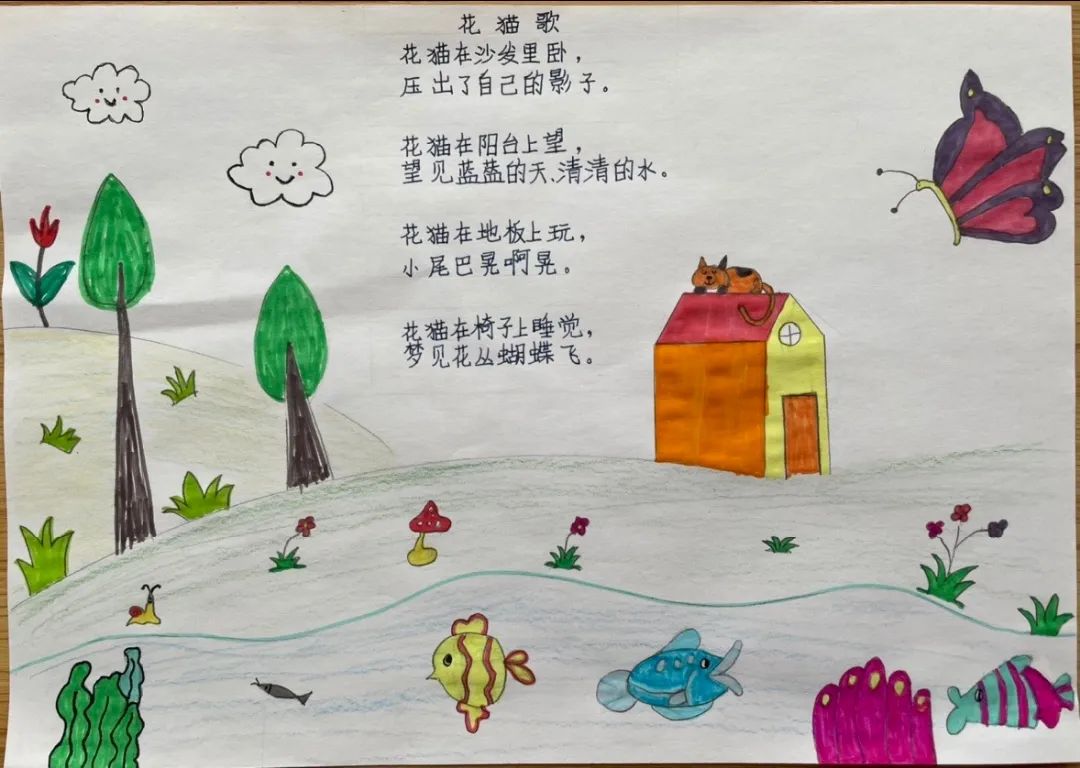 花猫歌
花猫在沙发里卧，
压出了自己的影子。
花猫在阳台上望，
望见蓝蓝的天、清清的水。
花猫在地板上玩，
小尾巴晃啊晃。
花猫在椅子上睡觉，
梦见花丛蝴蝶飞。